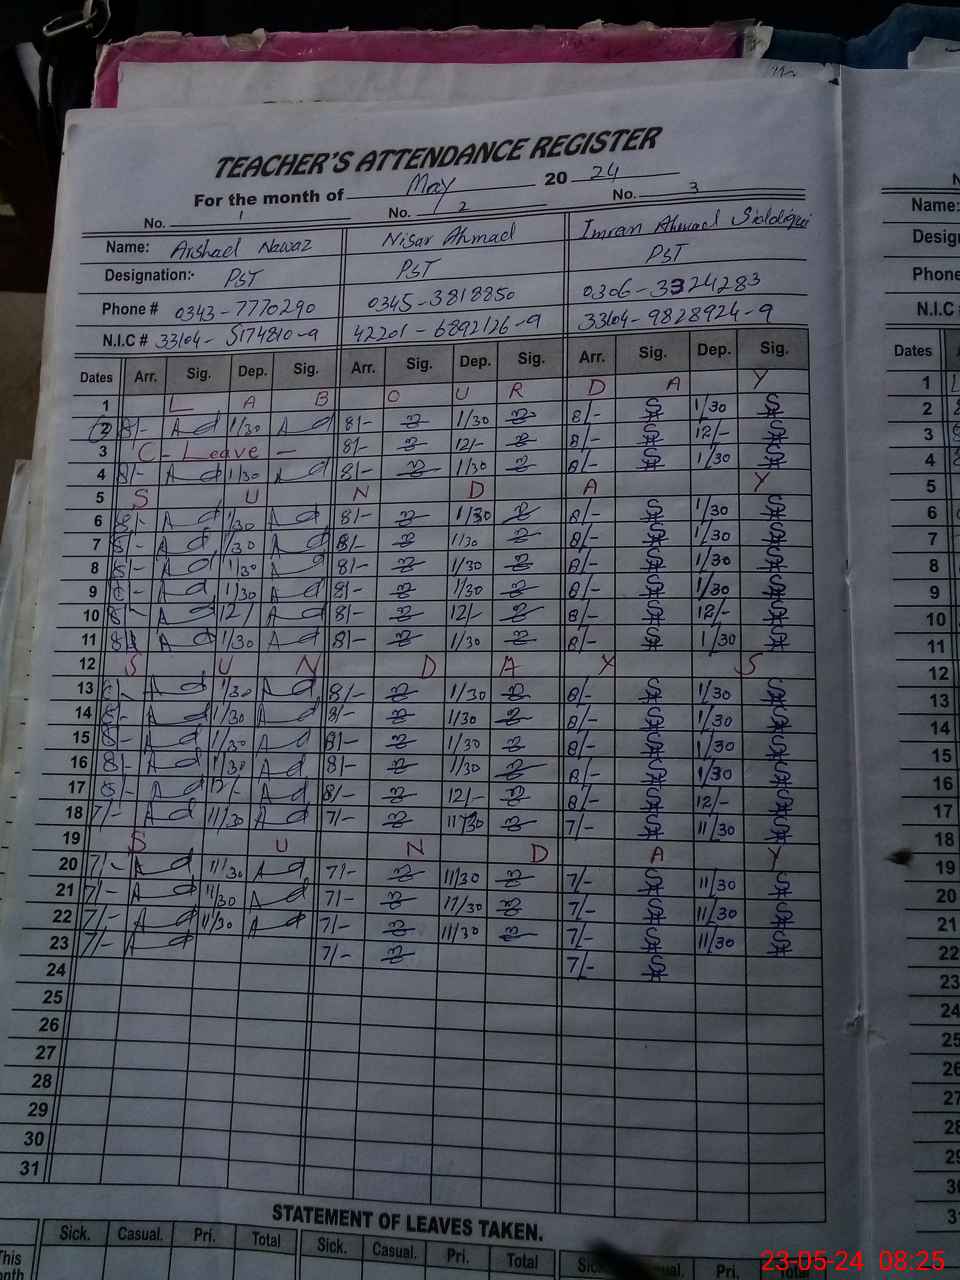 TEACHER'S ATTENDANCE REGISTER
For the month of May 2024
No. 1 No. 2 No. 3
Name: Arshad Nawaz Nisar Ahmad Imran Ahmad Siddiqui
Designation:- PST PST PST
Phone # 0343-7770290 0345-3818850 0306-3324283
N.I.C # 33104-5174810-9 42201-6892126-9 33104-9828924-9
Dates Arr. Sig. Dep. Sig. Arr. Sig. Dep. Sig. Arr. Sig. Dep. Sig.
1 L A B O U R D A Y
2 8/- 1/30 8/- 1/30 8/- 1/30
3 C-Leave - 8/- 12/- 8/- 12/-
4 8/- 1/30 8/- 1/30 8/- 1/30
5 S U N D A Y
6 8/- 1/30 8/- 1/30 8/- 1/30
7 8/- 1/30 8/- 1/30 8/- 1/30
8 8/- 1/30 8/- 1/30 8/- 1/30
9 8/- 1/30 8/- 1/30 8/- 1/30
10 8/- 12/ 8/- 12/- 8/- 12/-
11 8/- 1/30 8/- 1/30 8/- 1/30
12 S U N D A Y S
13 8/- 1/30 8/- 1/30 8/- 1/30
14 8/- 1/30 8/- 1/30 8/- 1/30
15 8/- 1/30 8/- 1/30 8/- 1/30
16 8/- 1/30 8/- 1/30 8/- 1/30
17 8/- 12/- 8/- 12/- 8/- 12/-
18 7/- 11/30 7/- 11/30 7/- 11/30
19 S U N D A Y
20 7/- 11/30 7/- 11/30 7/- 11/30
21 7/- 11/30 7/- 11/30 7/- 11/30
22 7/- 11/30 7/- 11/30 7/- 11/30
23 7/- 7/- 7/-
24
25
26
27
28
29
30
31
STATEMENT OF LEAVES TAKEN.
Sick. Casual. Pri. Total Sick. Casual. Pri. Total Sick. Casual. Pri. Total
This
Name:
Phone #
N.I.C #
Dates
1
2
3
4
5
6
7
8
9
10
11
12
13
14
15
16
17
18
19
20
21
22
23
24
25
26
27
28
29
30
23-05-24 08:25